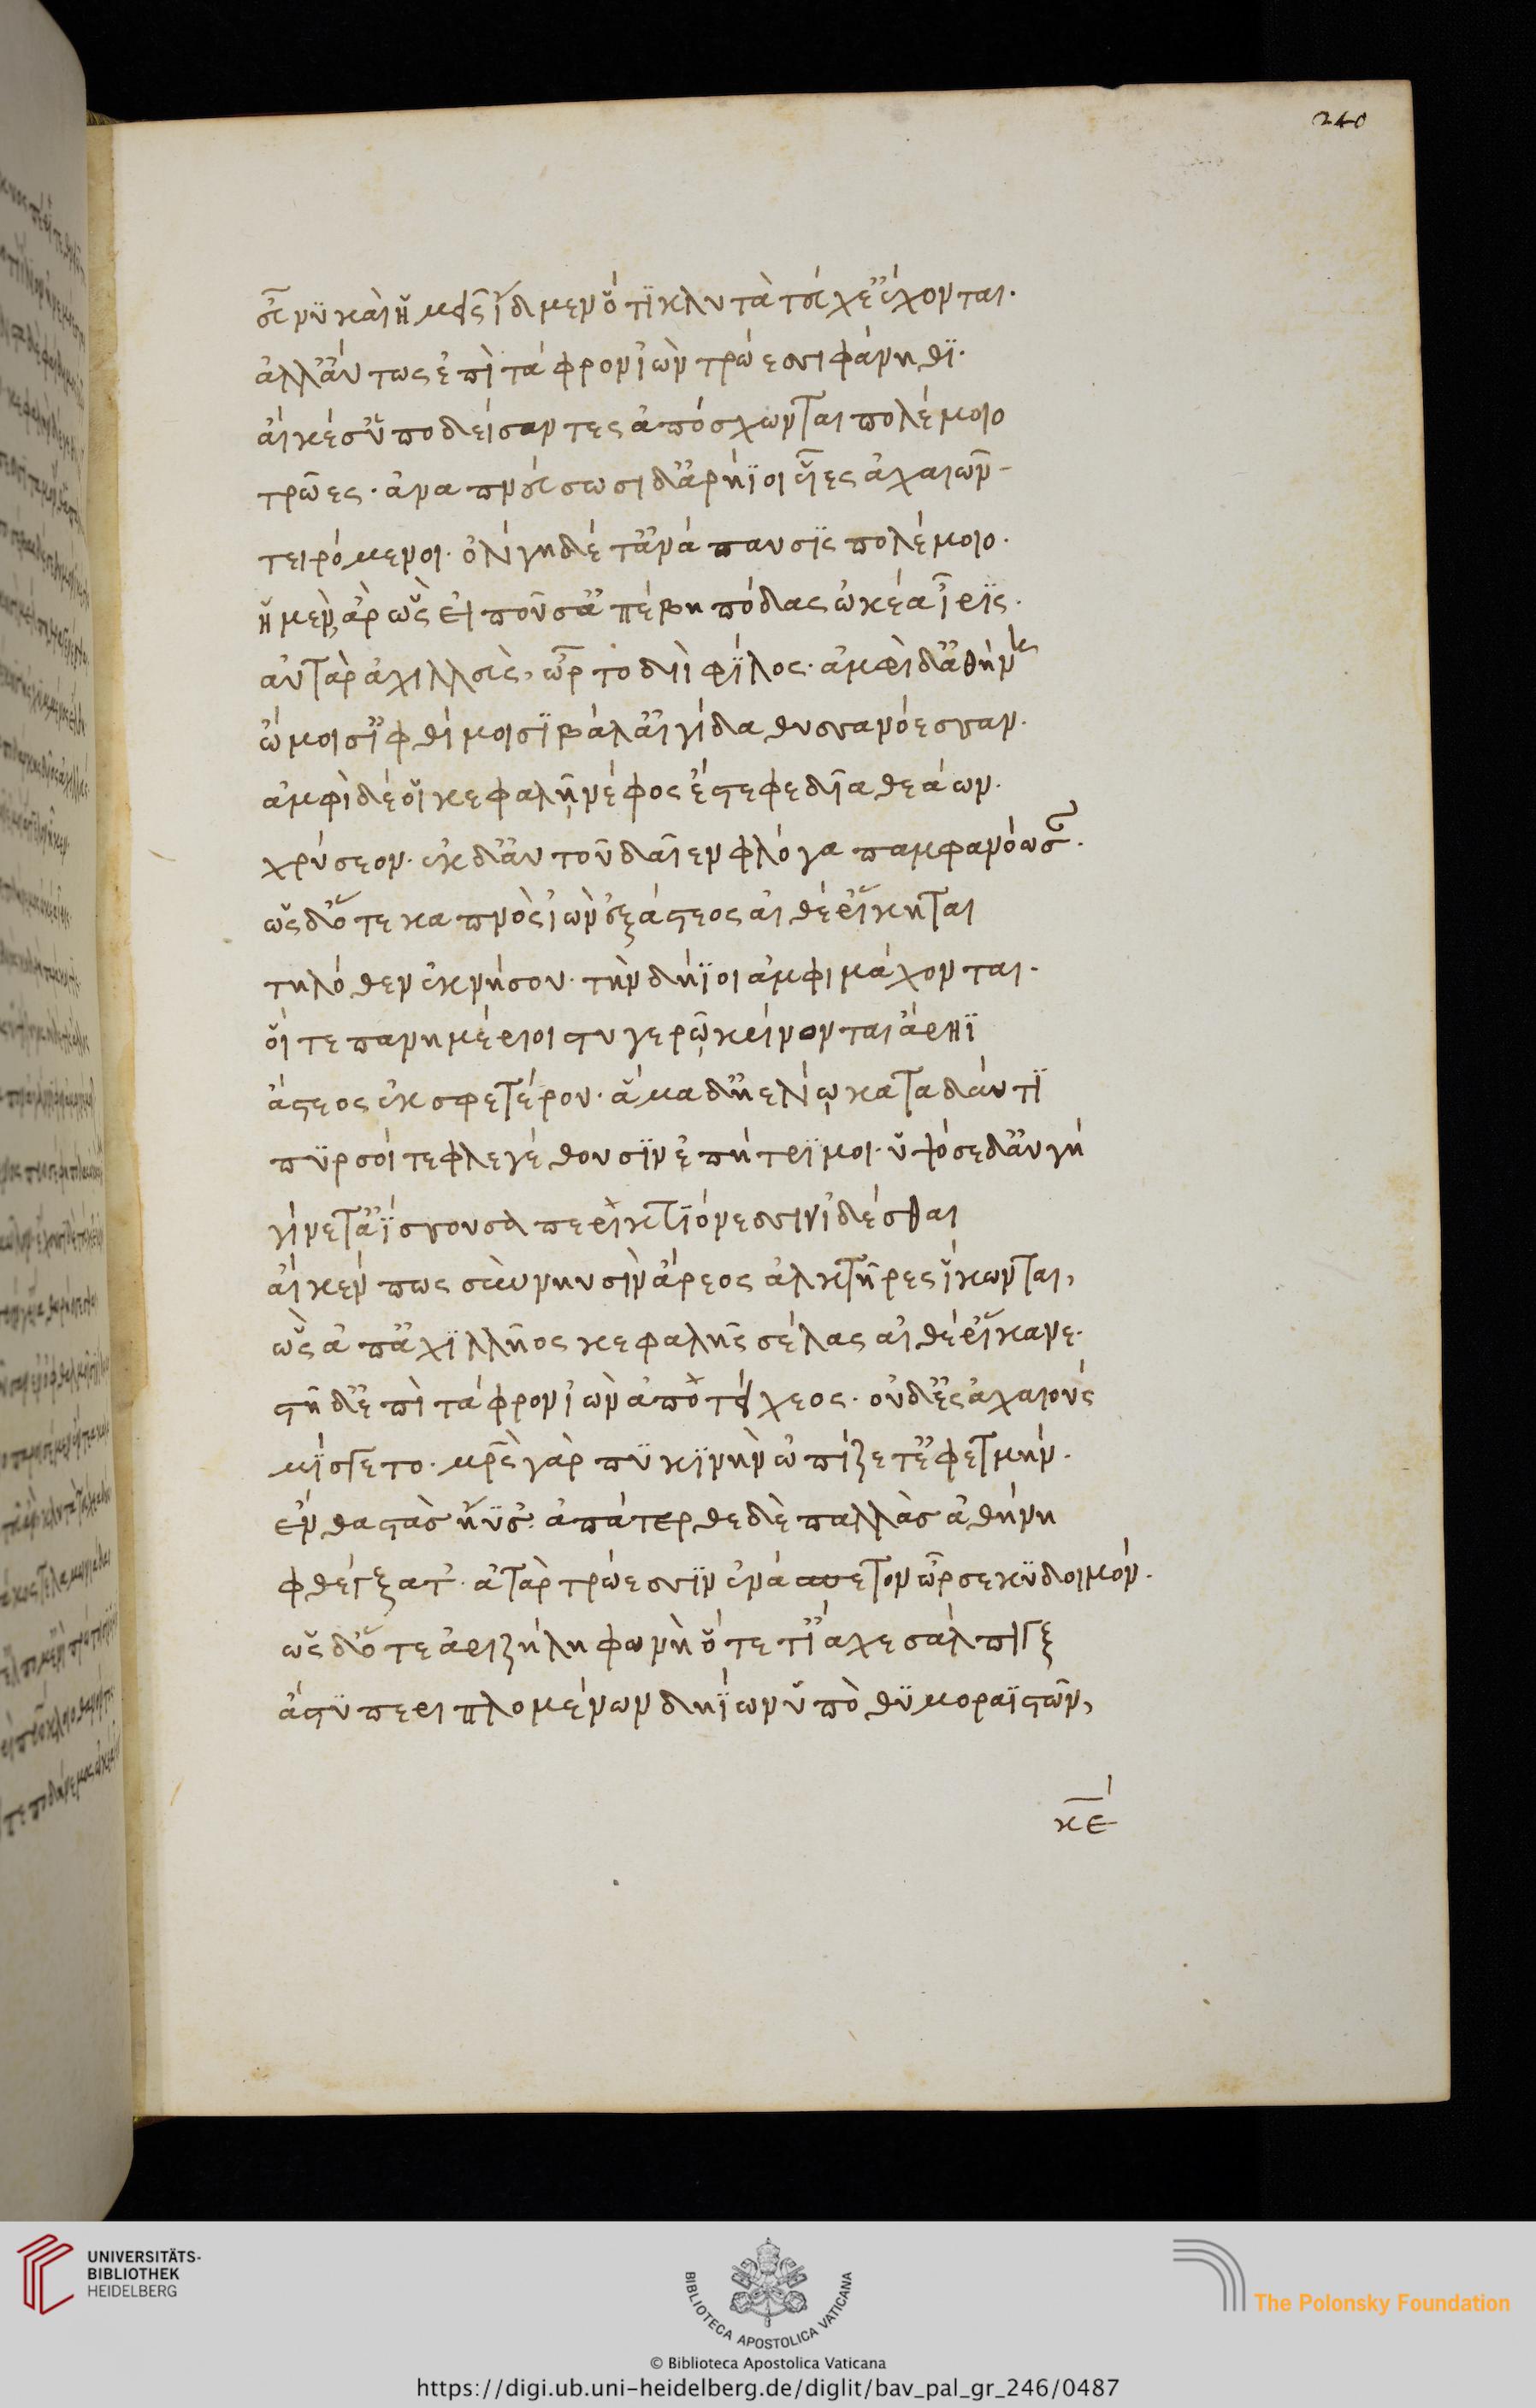 240
εὖ νὺ καὶ ἡμεῖς ἴδμεν ὅτι κλυτὰ τεύχε' ἔχονται.
ἀλλ' αὔτως ἐπὶ τάφρον ἰὼν τρώεσσι φάνηθι.
αἴ κέ σ' ὑποδείσαντες ἀπόσχωνται πολέμοιο
τρῶες. ἀναπνεύσωσι δ' ἀρήϊοι υἷες ἀχαιῶν
τειρόμενοι. ὀλίγη δέ τ' ἀνάπαυσις πολέμοιο.
ἣ μὲν ἂρ ὣς εἰποῦσ' ἀπέβη πόδας ὠκέα ἶρις.
αὐτὰρ ἀχιλλεὺς, ὦρτο διὶ φίλος. ἀμφὶ δ' ἀθήνη
ὤμοισ' ἰφθίμοισι βάλ' αἰγίδα θυσσανόεσσαν.
ἀμφὶ δέ οἱ κεφαλῇ νέφος ἔστεφε δῖα θεάων.
χρύσεον. ἐκ δ' αὐτοῦ δαῖεν φλόγα παμφανόωσαν.
ὣς δ' ὅτε καπνὸς ἰὼν ἐξ ἄστεος αἰθέρ' ἵκηται
τηλόθεν ἐκ νήσου. τὴν δήϊοι ἀμφιμάχονται.
οἵ τε πανημέριοι στυγερῷ κρίνονται ἄρηϊ
ἄστεος ἐκ σφετέρου. ἅμα δ' ἠελίῳ καταδύντι
πυρσοί τε φλεγέθουσιν ἐπήτριμοι. ὑψόσε δ' αὐγὴ
γίνετ' ἀΐσσουσα περικτιόνεσσιν ἰδέσθαι
αἴ κέν πως σὺν νηυσὶν ἄρεος ἀλκτῆρες ἵκωνται,
ὣς ἀπ' ἀχιλλῆος κεφαλῆς σέλας αἰθέρ' ἵκανε.
στῆ δ' ἐπὶ τάφρον ἰὼν ἀπὸ τείχεος. οὐδ' ἐς ἀχαιοὺς
μίσγετο. μητρὸς γὰρ πυκινὴν ὠπίζετ' ἐφετμήν.
ἔνθα στὰς ἤϋσ'. ἀπάτερθε δὲ παλλὰς ἀθήνη
φθέγξατ'. ἀτὰρ τρώεσσιν ἐν ἄσπετον ὦρσε κυδοιμόν.
ὣς δ' ὅτε ἀριζήλη φωνὴ ὅτε τ' ἴαχε σάλπιγξ
ἄστυ περιπλομένων δηΐων ὑπὸ θυμοραϊστῶν,
κε
UNIVERSITÄTS-
BIBLIOTHEK
HEIDELBERG
BIBLIOTECA APOSTOLICA VATICANA
The Polonsky Foundation
© Biblioteca Apostolica Vaticana
https://digi.ub.uni-heidelberg.de/diglit/bav_pal_gr_246/0487